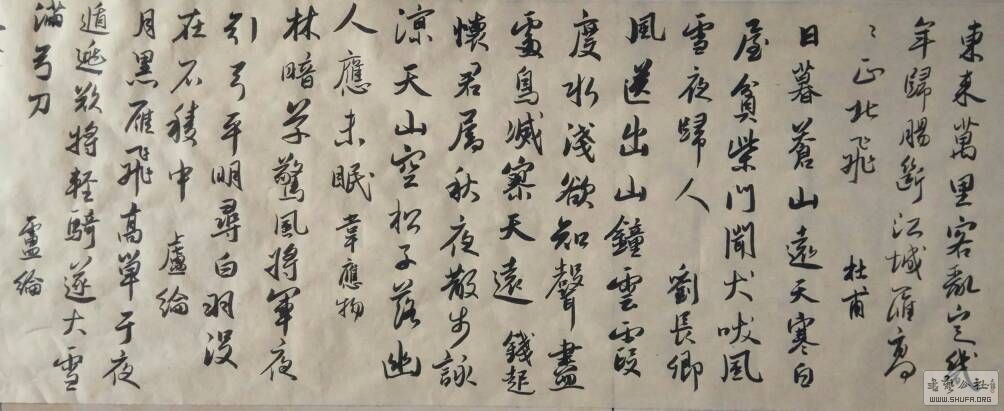 東来萬里客亂定幾
年歸腸斷江城雁高
〻正北飛 杜甫
日暮蒼山遠天寒白
屋貧柴門聞犬吠風
雪夜歸人 劉長卿
風送出山鐘雲霞
度水淺欲知聲盡
處鳥滅寥天遠 錢起
懷君屬秋夜散步詠
涼天山空松子落幽
人應未眠 韋應物
林暗草驚風將軍夜
引弓平明尋白羽没
在石稜中 盧綸
月黑雁飛高單于夜
遁逃欲將軽騎逐大雪
滿弓刀 盧綸
書藝公社
WWW.SHUFA.ORG